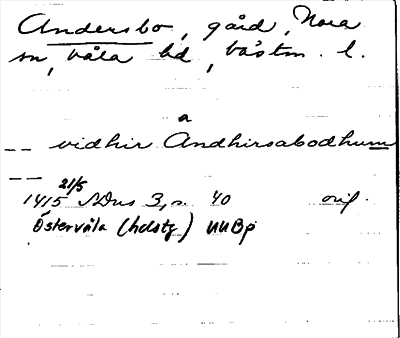 Andersbo, gård, Nora
sn, Våla hd, Västm. l.
a
-- vidhir Andhirsabodhum
--
21/5
1415 SDns 3, s. 40 orig.
Östervåla (hdstg) UUBp